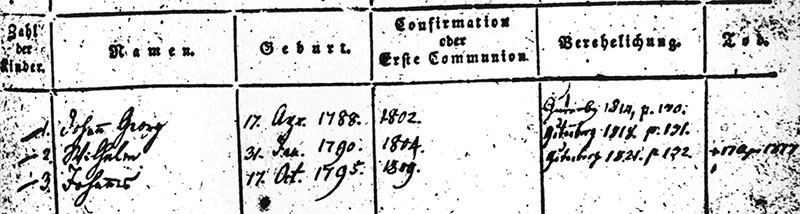 Zahl der Kinder. Namen. Geburt. Confirmation oder Erste Communion. Verehelichung. Tod.
1. Johann Georg 17. Apr. 1788. 1802. 1814, p. 170.
2. Wilhelm 31. Jan. 1790. 1804. 1818. p. 191.
3. Johannes 17. Oct. 1795. 1809. 1821. p. 192.